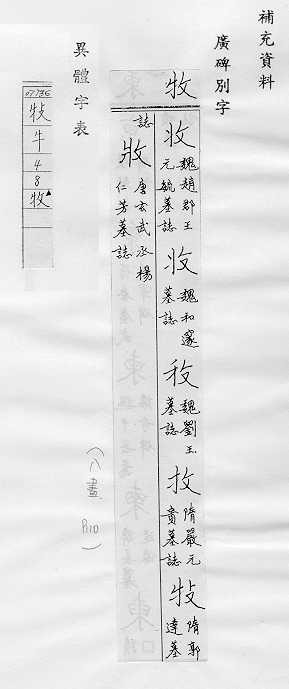 補充資料
廣碑別字
牧
魏趙郡王
元毓墓誌
魏和邃
墓誌
魏劉玉
墓誌
隋嚴元
貴墓誌
隋郭
達墓
誌
唐玄武丞楊
仁芳墓誌
(八畫 P.10)
異體字表
牛
4
8
牧